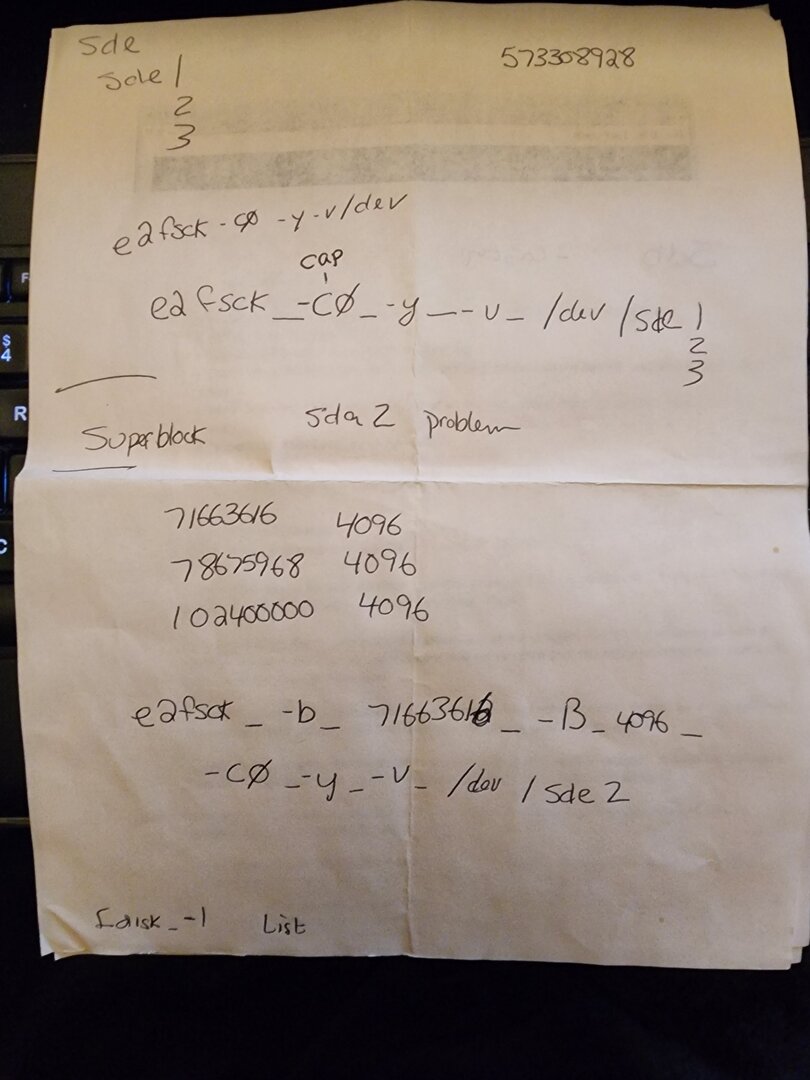 sde
573308928
sde 1
2
3
e2fsck -CØ -y -v /dev
cap
e2fsck _ -CØ _ -y _ -v _ /dev /sde 1
2
3
Superblock sda 2 problem
71663616 4096
78675968 4096
102400000 4096
e2fsck _ -b _ 71663616 _ -B _ 4096 _
-CØ _ -y _ -v _ /dev / sde 2
fdisk _ -l List
$
4
R
C
F